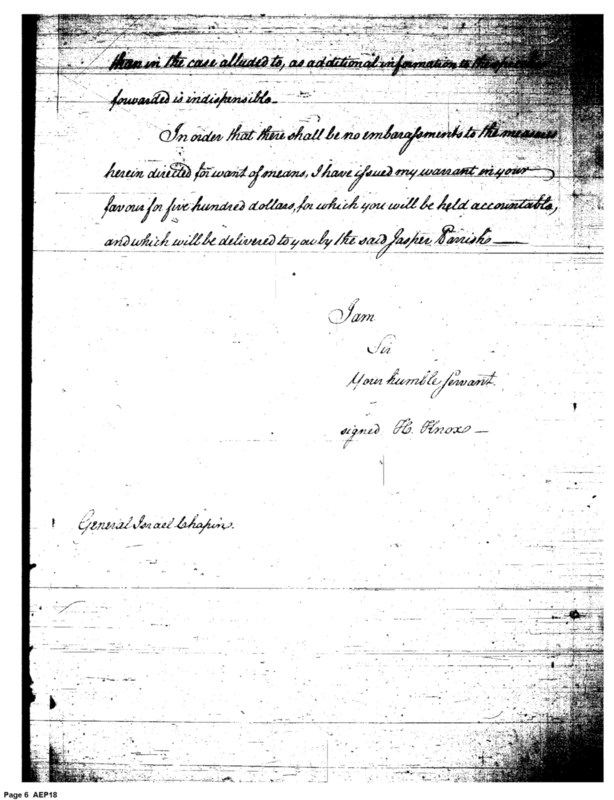 than in the case alluded to, as additional information to the
forwarded is indispensible.
In order that there shall be no embarassments to the measures
herein directed for want of means, I have issued my warrant in your
favour for five hundred dollars, for which you will be held accountable,
and which will be delivered to you by the said Jasper Parrish —
I am
Sir
Your humble Servant.
signed H. Knox —
General Israel Chapin.
Page 6 AEP18